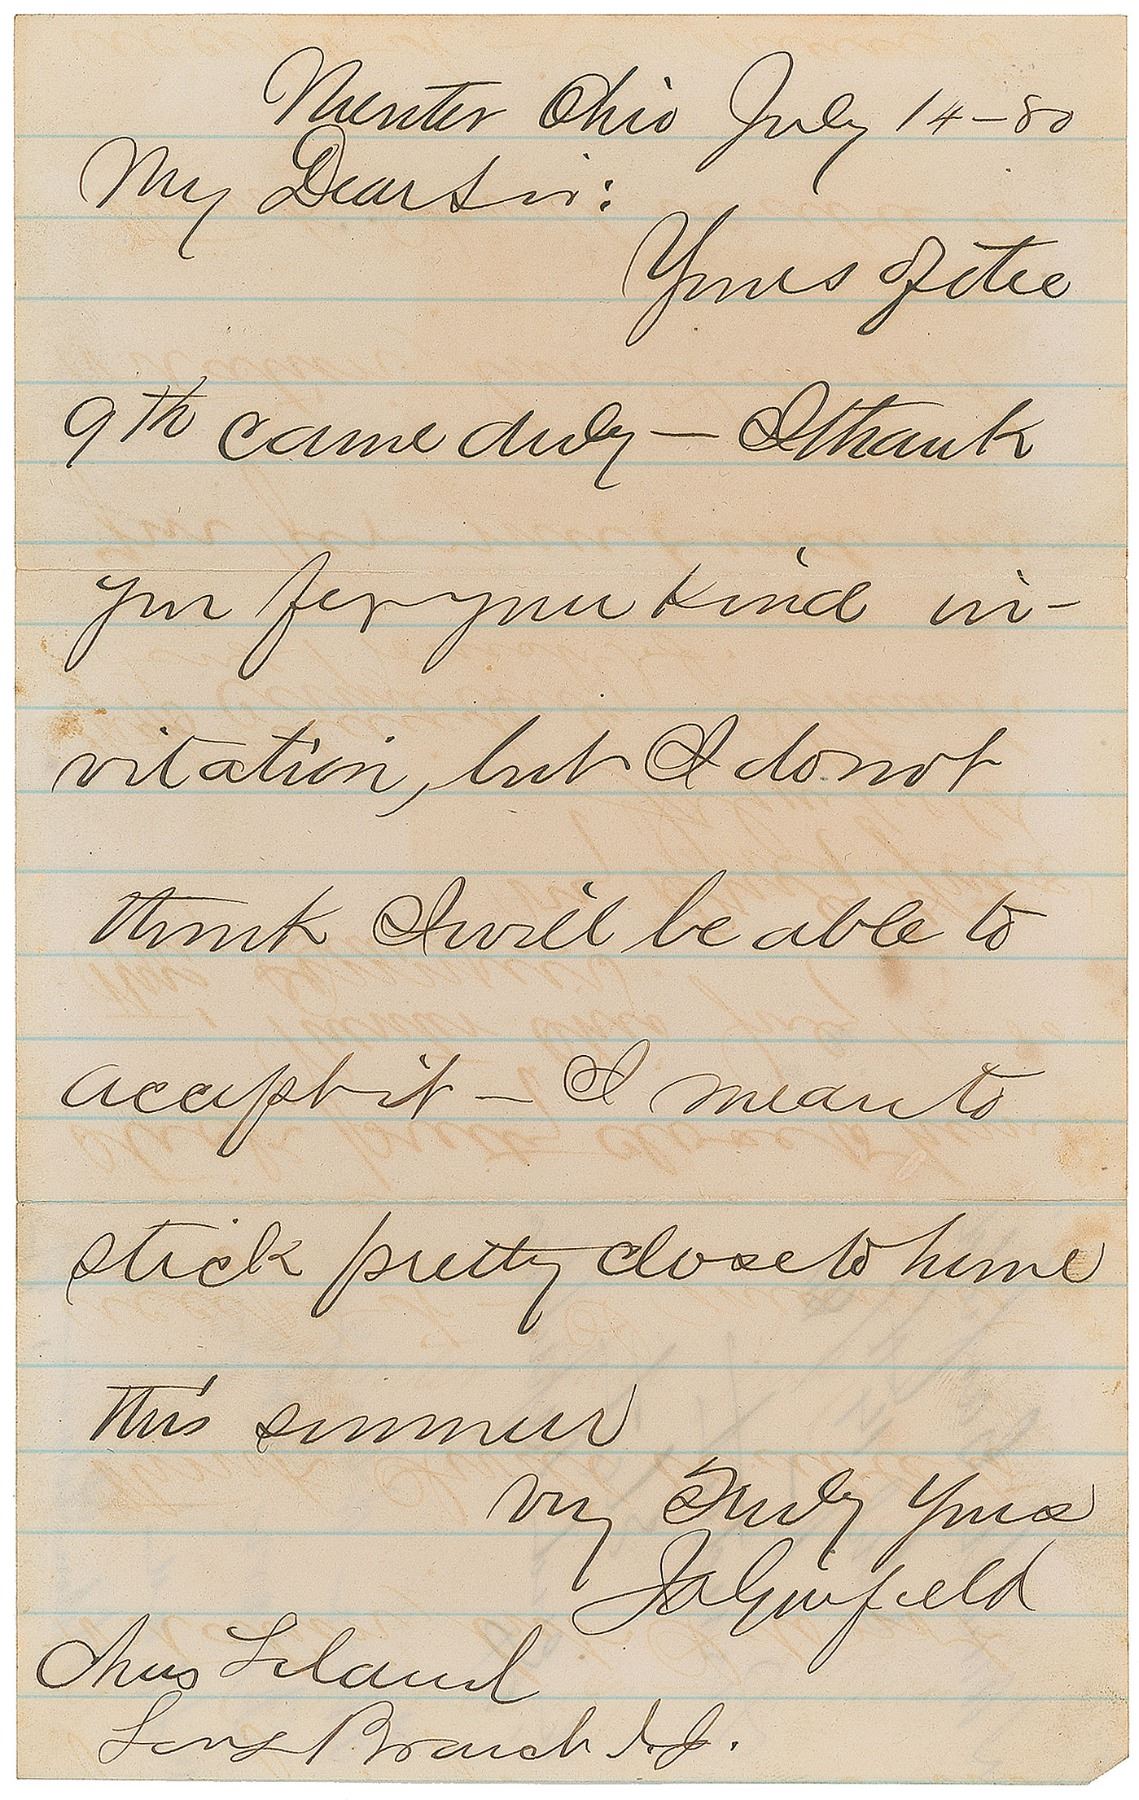 Mentor Ohio July 14-80
My Dear Sir:
Yours of the
9th came duly — I thank
you for your kind in-
vitation, but I do not
think I will be able to
accept it — I mean to
stick pretty close to home
this summer
Very Truly Yours
J A Garfield
Chas Leland
Long Branch N.J.